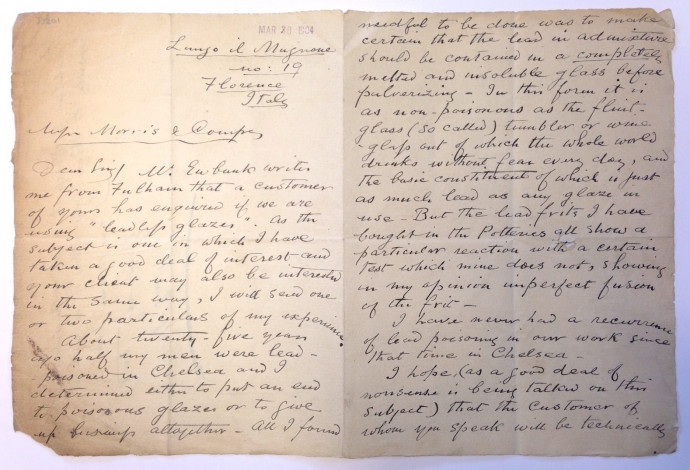 MAR 20 1904
Lungo il Mugnone
no: 19
Florence
Italy
Messrs Morris & Compy
Dear Sirs Mr. Ewbank writes
me from Fulham that a customer
of yours has enquired if we are
using "leadless glazes". As the
subject is one in which I have
taken a good deal of interest and
your client may also be interested
in the same way, I will send one
or two particulars of my experience.
About twenty-five years
ago half my men were lead-
poisoned in Chelsea and I
determined either to put an end
to poisonous glazes or to give
up business altogether - All I found
needful to be done was to make
certain that the lead in admixture
should be contained in a completely
melted and insoluble glass before
pulverizing - In this form it is
as non-poisonous as the flint-
glass (so called) tumbler or wine
-glass out of which the whole world
drinks without fear every day, and
the basic constituent of which is just
as much lead as any glaze in
use - But the lead frits I have
bought in the Potteries all show a
particular reaction with a certain
test which mine does not, showing
in my opinion imperfect fusion
of the frit -
I have never had a recurrence
of lead poisoning in our work since
that time in Chelsea -
I hope, (as a good deal of
nonsense is being talked on this
subject) that the customer of
whom you speak will be technically